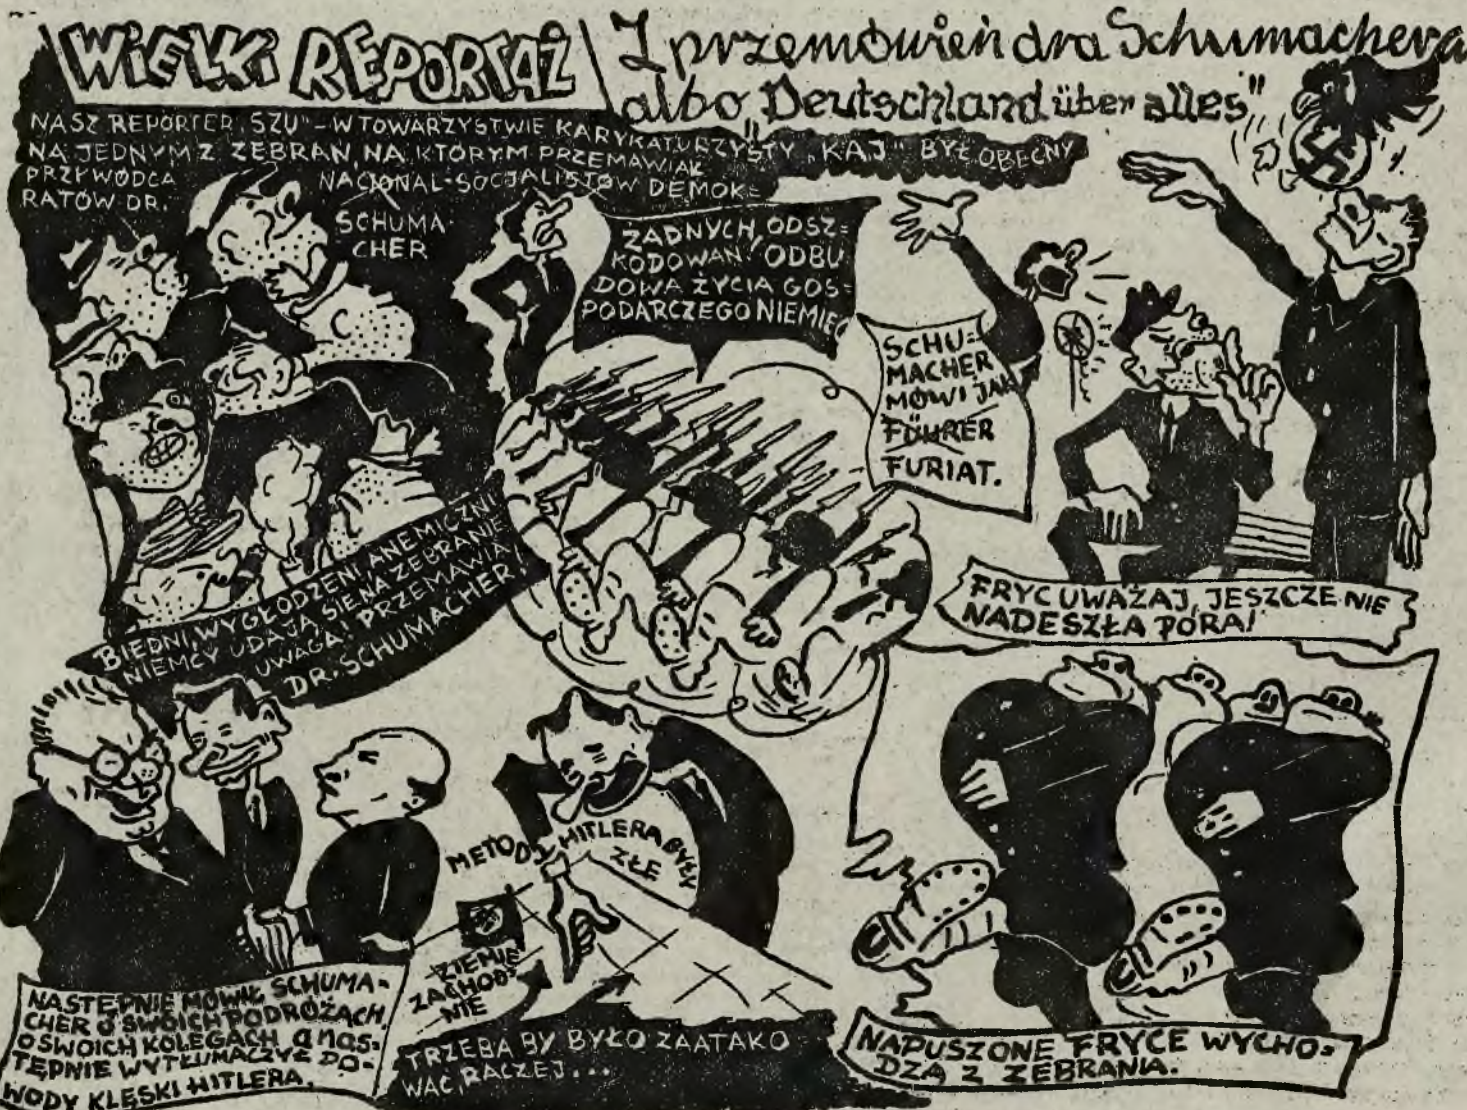 WIELKI REPORTAŻ
Z przemówień dra Schumachera
albo „Deutschland über alles"
NASZ REPORTER „SZU" – W TOWARZYSTWIE KARYKATURZYSTY „KAJ" BYŁ OBECNY
NA JEDNYM Z ZEBRAŃ, NA KTÓRYM PRZEMAWIAŁ
PRZYWÓDCA NACJONAL-SOCJALISTÓW DEMOK=
RATÓW DR. SCHUMA-
CHER
ŻADNYCH ODSZ=
KODOWAŃ! ODBU
DOWA ŻYCIA GOS=
PODARCZEGO NIEMIEC
SCHU=
MACHER
MÓWI JAK
FÜHRER
FURIAT.
BIEDNI, WYGŁODZENI, ANEMICZNI
NIEMCY UDAJĄ SIĘ NA ZEBRANIE
UWAGA! PRZEMAWIA
DR. SCHUMACHER!
FRYC UWAŻAJ, JESZCZE NIE
NADESZŁA PORA!
METODY HITLERA BYŁY
ZŁE
ZIEMIE
ZACHOD=
NIE
NASTĘPNIE MÓWIŁ SCHUMA-
CHER O SWOICH PODRÓŻACH,
O SWOICH KOLEGACH a nas-
TĘPNIE WYTŁUMACZYŁ DO-
WODY KLĘSKI HITLERA.
TRZEBA BY BYŁO ZAATAKO
WAĆ RACZEJ...
NAPUSZONE FRYCE WYCHO=
DZĄ Z ZEBRANIA.